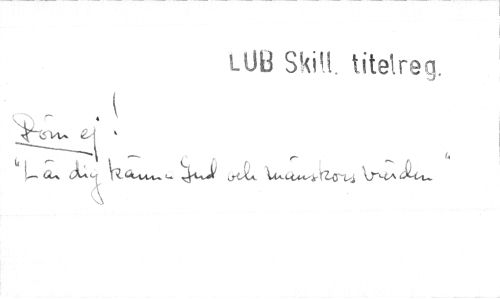 LUB Skill. titelreg.
Döm ej!
"Lär dig känna Gud och mänskors värden"